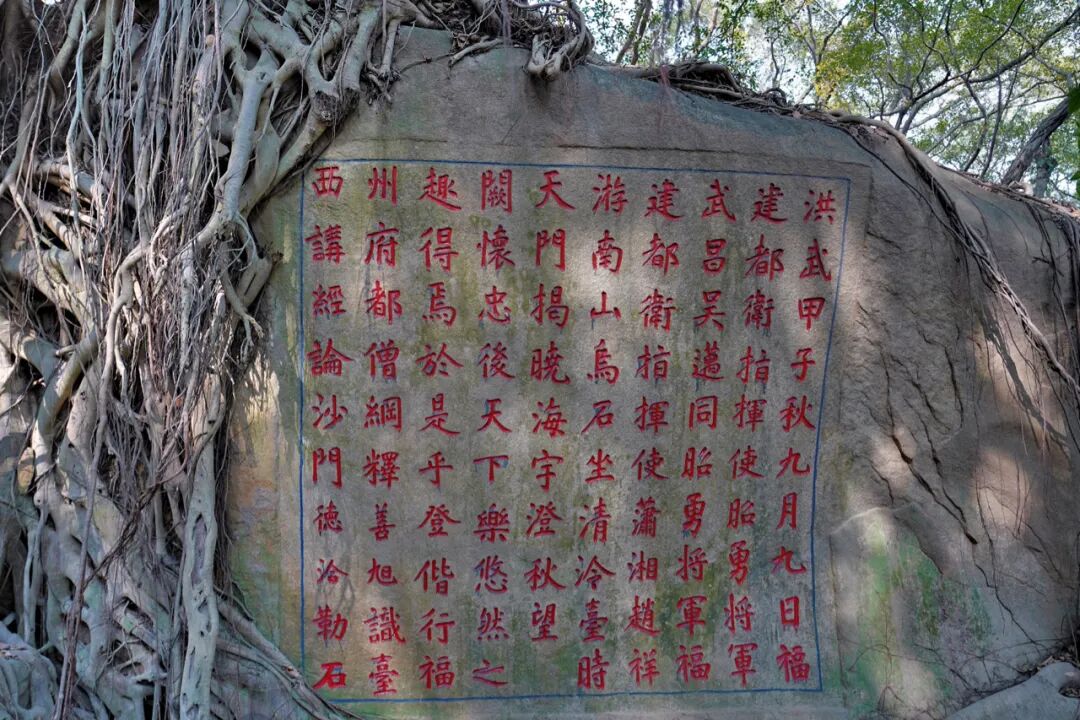 洪武甲子秋九月九日福
建都衛指揮使昭勇將軍
武昌吳邁同昭勇將軍福
建都衛指揮使瀟湘趙祥
游南山烏石坐清泠臺時
天門揭曉海宇澄秋望
闕懷忠後天下樂悠然之
趣得焉於是乎登偕行福
州府都僧綱釋善旭識臺
西講經論沙門德洽勒石